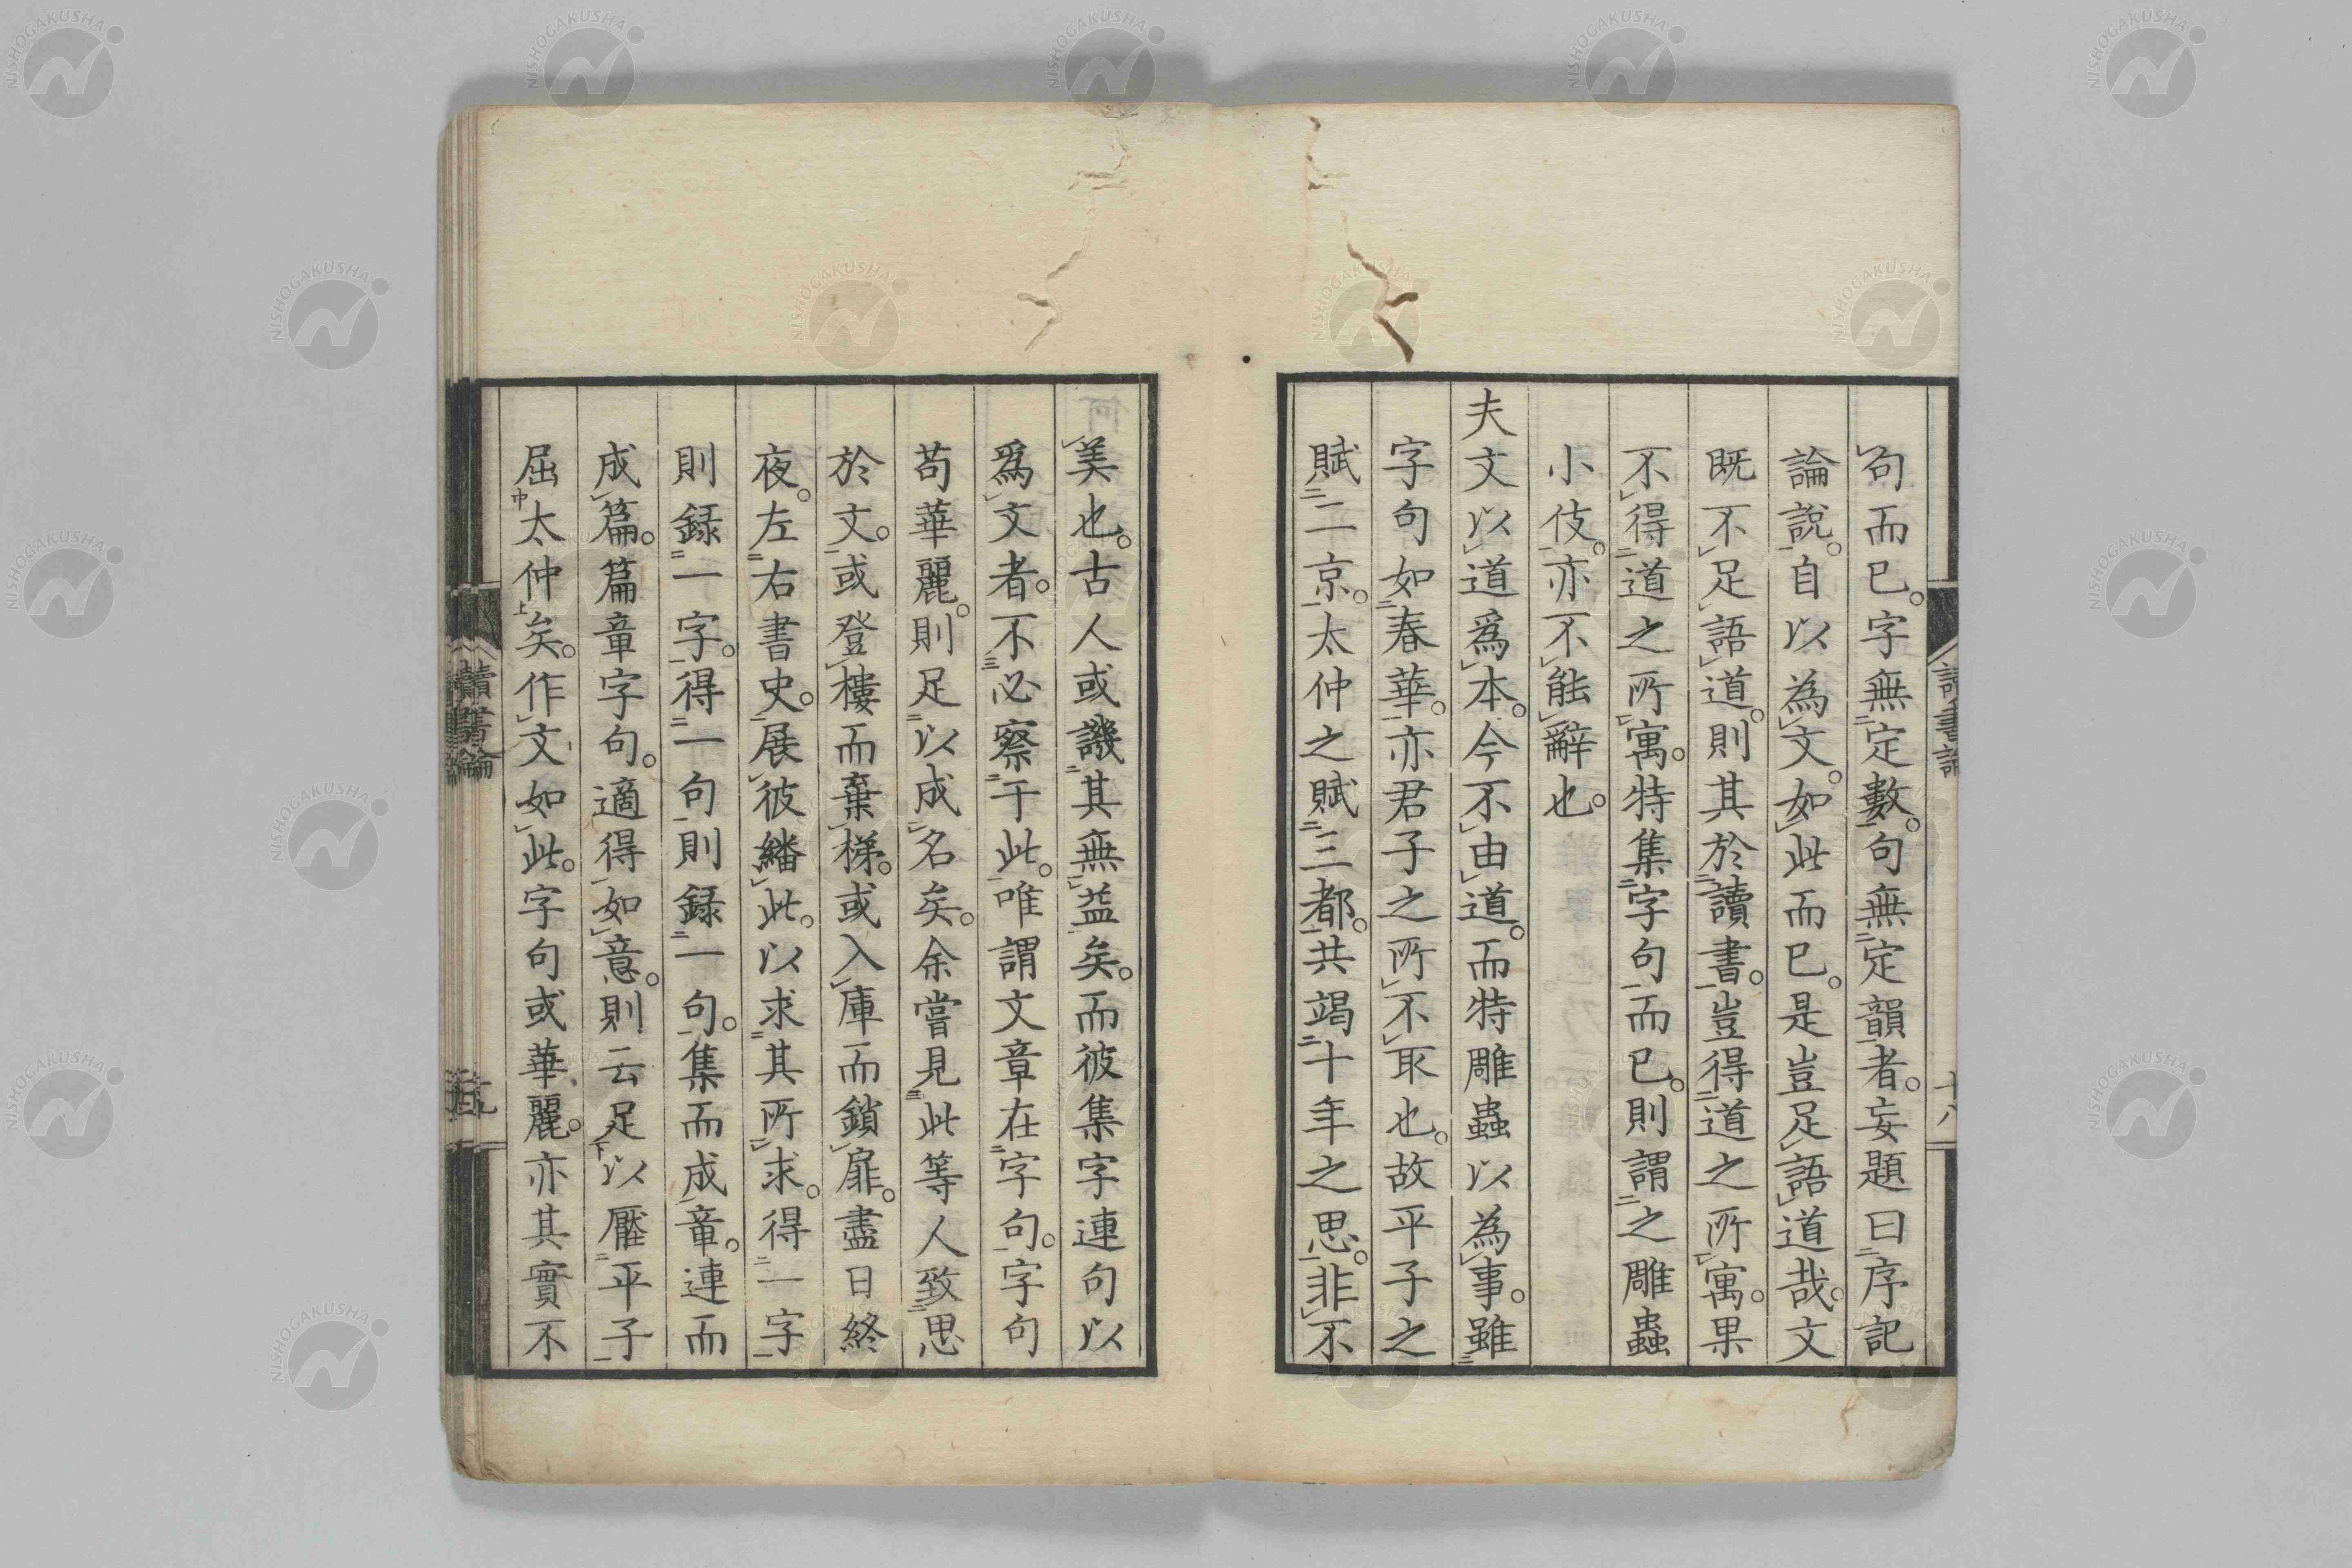 句而已。字無定數。句無定韻者。妄題曰序記
論說。自以為文。如此而已。是豈足語道哉。文
既不足語道。則其於讀書。豈得道之所寓。果
不得道之所寓。特集字句而已。則謂之雕蟲
小伎。亦不能辭也。
夫文以道爲本。今不由道。而特雕蟲以為事。雖
字句如春華。亦君子之所不取也。故平子之
賦二京。太仲之賦三都。共竭十年之思。非不
美也。古人或譏其無益矣。而彼集字連句以
爲文者。不必察于此。唯謂文章在字句。字句
苟華麗。則足以成名矣。余嘗見此等人致思
於文。或登樓而棄梯。或入庫而鎖扉。盡日終
夜。左右書史。展彼繙此。以求其所求。得一字
則録一字。得一句則録一句。集而成章。連而
成篇。篇章字句。適得如意。則云足以壓平子
屈太仲矣。作文如此。字句或華麗。亦其實不
讀書論
十八
NISHOGAKUSHA